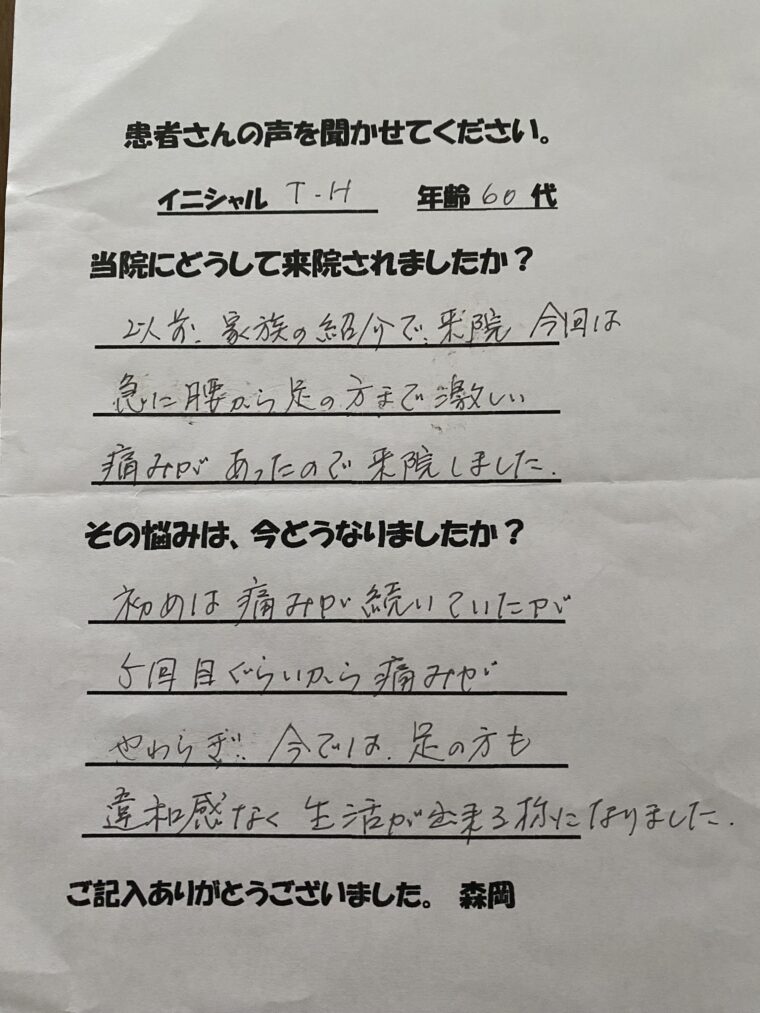 患者さんの声を聞かせてください。
イニシャル T-H 年齢 60 代
当院にどうして来院されましたか？
以前、家族の紹介で、来院 今回は
急に腰から足の方まで激しい
痛みが あったので 来院しました.
その悩みは、今どうなりましたか？
初めは 痛みが 続いていたが
5回目ぐらいから 痛みが
やわらぎ、今では、足の方も
違和感なく 生活が出来る様になりました.
ご記入ありがとうございました。 森岡